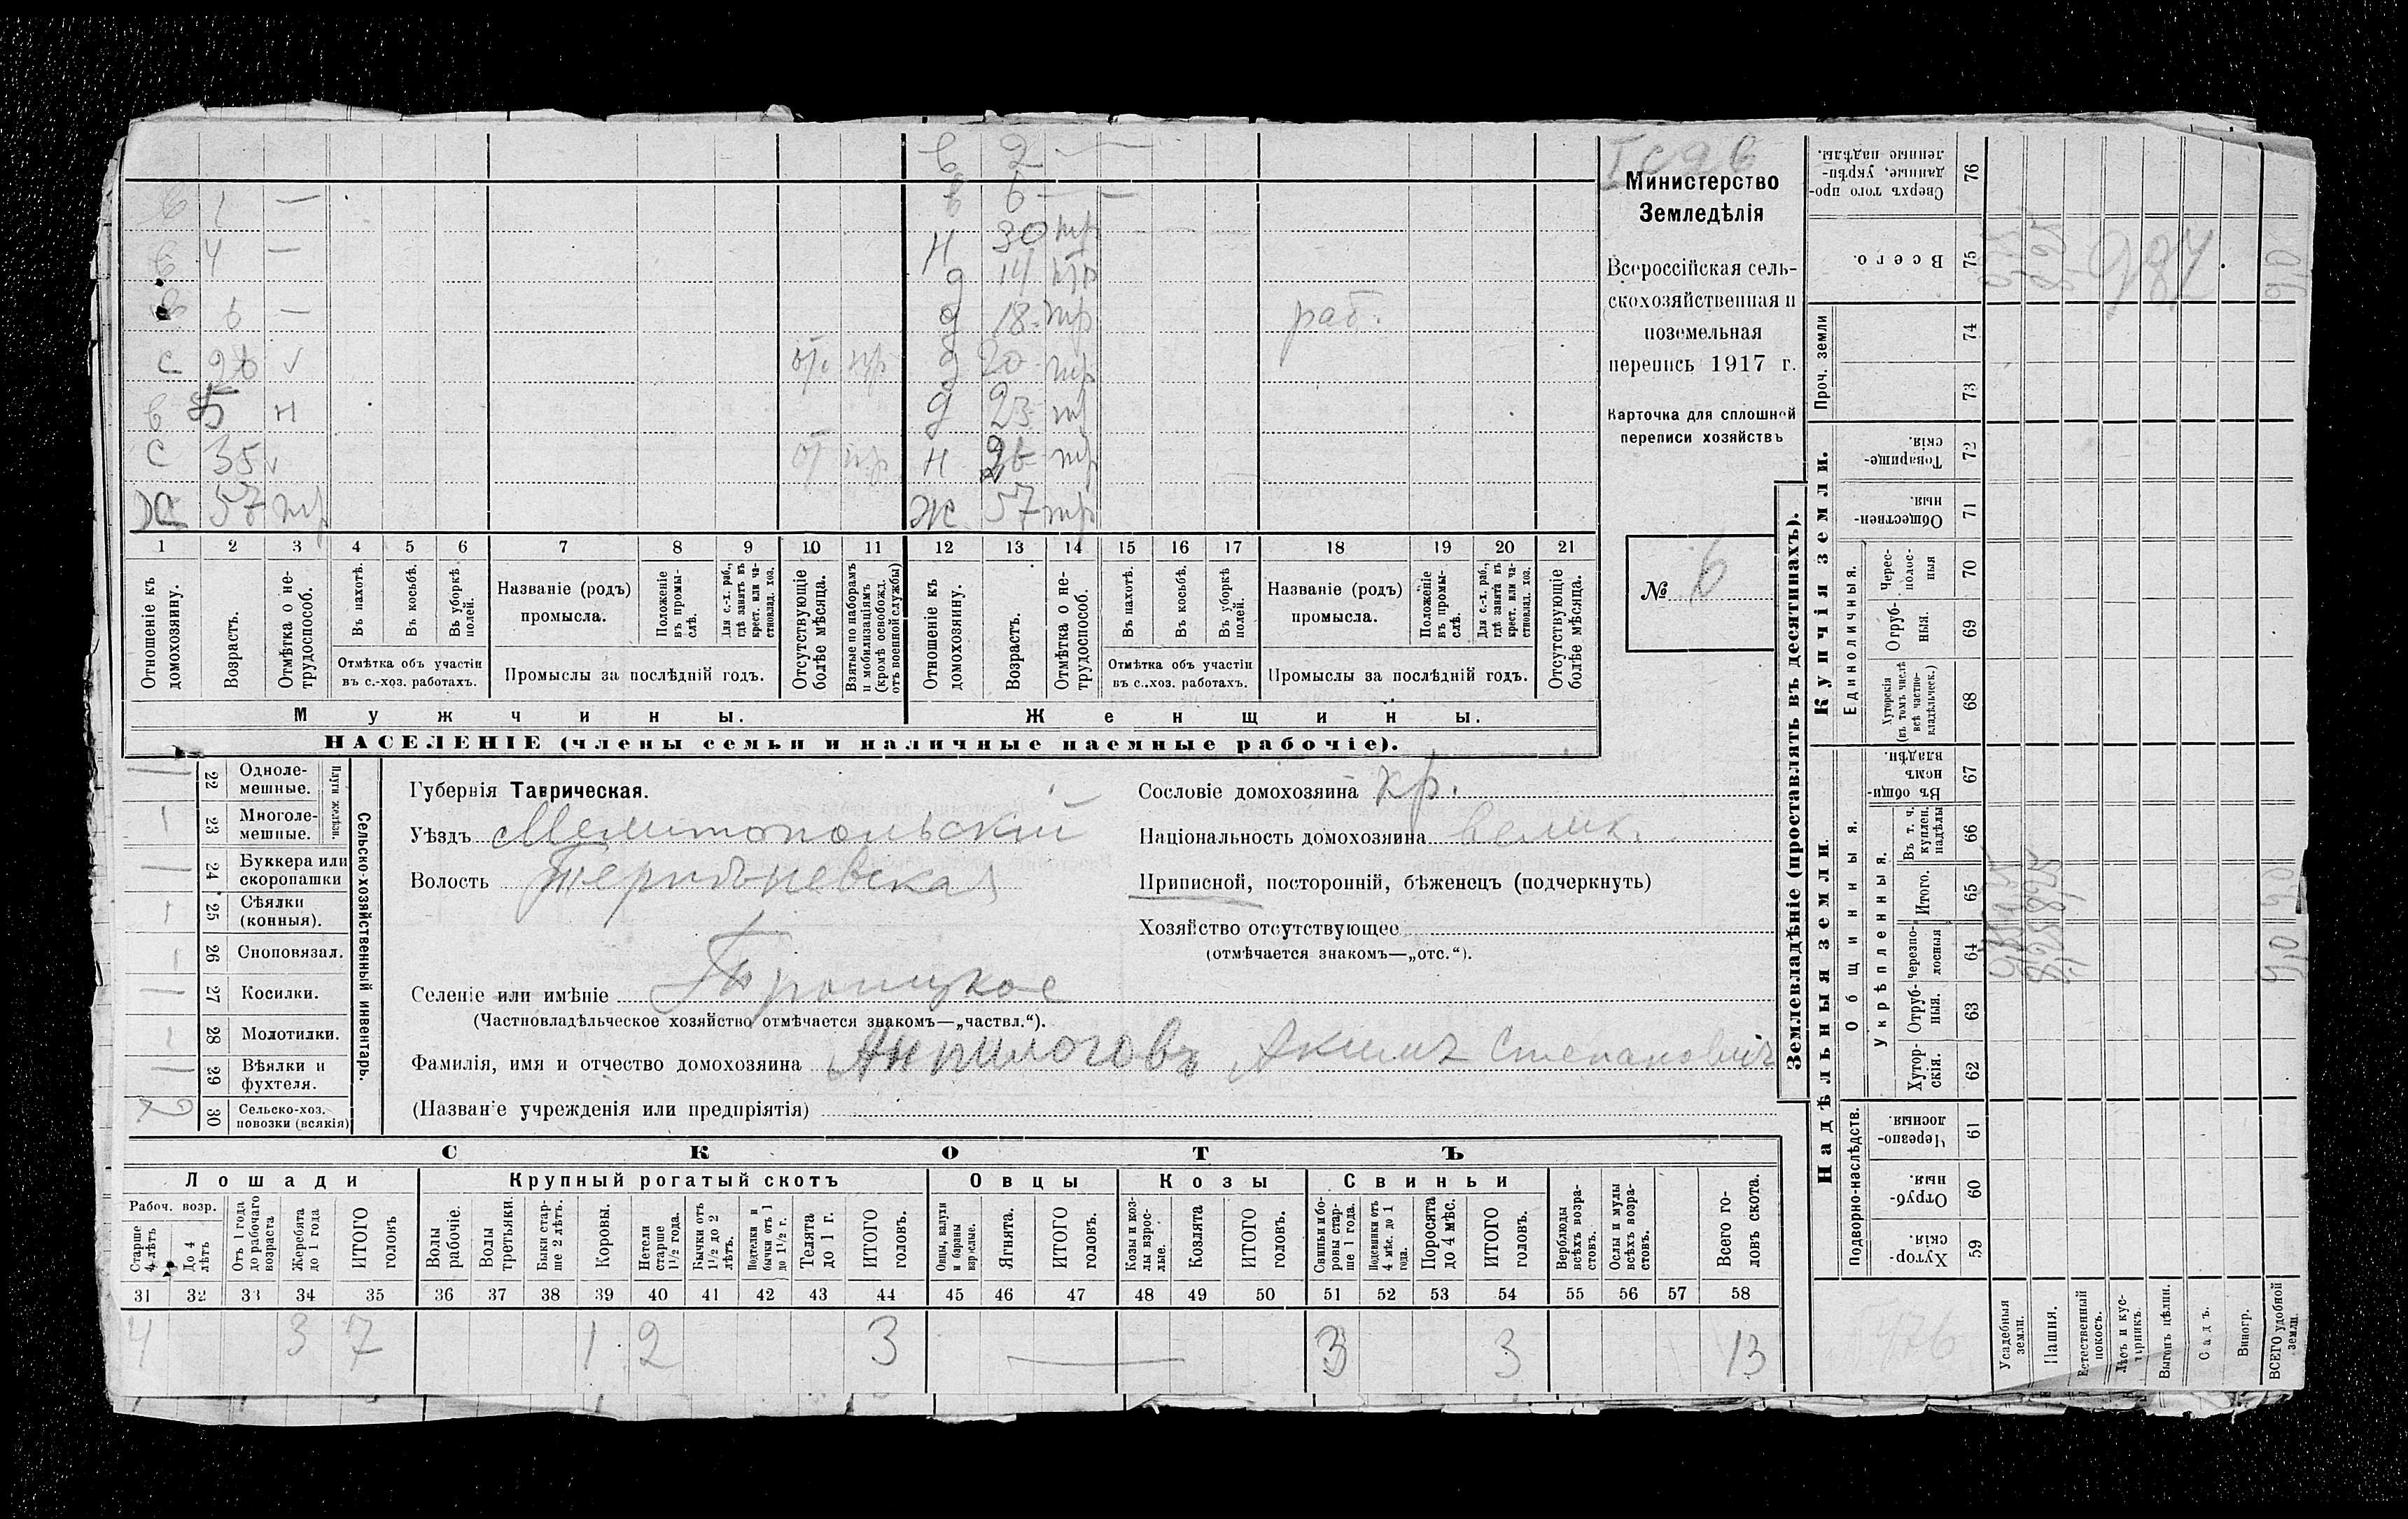 Министерство
Земледѣлія
Всероссійская сель-
скохозяйственная и
поземельная
перепись 1917 г.
Карточка для сплошной
переписи хозяйствъ
№ 6
в 2 —
в 1 — в 6 — —
в 4 — н 30 тр
д 14 тр
в 6 — д 18 тр раб.
с 26 v от. пр д 20 тр
в 5 н д 23 тр
с 35 v от пр н 26 тр
57 тр ж 57 тр
1 2 3 4 5 6 7 8 9 10 11 12 13 14 15 16 17 18 19 20 21
Отношеніе къ домохозяину.
Возрастъ.
Отмѣтка о не-трудоспособ.
Въ пахотѣ.
Въ косьбѣ.
Въ уборкѣ полей.
Отмѣтка объ участіи въ с.-хоз. работахъ.
Названіе (родъ) промысла.
Положеніе въ промы-слѣ.
Для с.-х. раб., гдѣ занятъ въ крест. или ча-стновлад. хоз.
Промыслы за послѣдній годъ.
Отсутствующіе болѣе мѣсяца.
Взятые по наборамъ и мобилизаціямъ (кромѣ освобожд. отъ военной службы)
Отношеніе къ домохозяину.
Возрастъ.
Отмѣтка о не-трудоспособ.
Въ пахотѣ.
Въ косьбѣ.
Въ уборкѣ полей.
Отмѣтка объ участіи въ с.-хоз. работахъ.
Названіе (родъ) промысла.
Положеніе въ промы-слѣ.
Для с.-х. раб., гдѣ занятъ въ крест. или ча-стновлад. хоз.
Промыслы за послѣдній годъ.
Отсутствующіе болѣе мѣсяца.
Мужчины. Женщины.
НАСЕЛЕНІЕ (члены семьи и наличные наемные рабочіе).
Сельско-хозяйственный инвентарь.
Плуги желѣзн.
— 22 Одноле-мешные.
1 23 Многоле-мешные.
— 24 Буккера или скоропашки
1 25 Сѣялки (конныя).
1 26 Сноповязал.
— 27 Косилки.
1 28 Молотилки.
— 29 Вѣялки и фухтеля.
2 30 Сельско-хоз. повозки (всякія)
Губернія Таврическая.
Уѣздъ Мелитопольскій
Волость
Селеніе или имѣніе Троицкое
(Частновладѣльческое хозяйство отмѣчается знакомъ—„частвл.“).
Фамилія, имя и отчество домохозяина Анпилоговъ Акимъ Степановичъ
(Названіе учрежденія или предпріятія)
Сословіе домохозяина кр.
Національность домохозяина велик.
Приписной, посторонній, бѣженецъ (подчеркнуть)
Хозяйство отсутствующее
(отмѣчается знакомъ—„отс.“).
СКОТЪ
Лошади Крупный рогатый скотъ Овцы Козы Свиньи
Рабоч. возр.
Старше 4 лѣтъ
До 4 лѣтъ
Отъ 1 года до рабочаго возраста
Жеребята до 1 года
ИТОГО головъ
Волы рабочіе.
Волы третьяки.
Быки стар-ше 2 лѣтъ.
Коровы.
Нетели старше 1½ года.
Бычки отъ 1½ до 2 лѣтъ.
Подтелки и бычки отъ 1 до 1½ г.
Телята до 1 г.
ИТОГО головъ.
Овцы, валухи и бараны взрослые.
Ягнята.
ИТОГО головъ.
Козы и коз-лы взрос-лые.
Козлята
ИТОГО головъ.
Свиньи и бо-ровы стар-ше 1 года.
Подсвинки отъ 4 мѣс. до 1 года.
Поросята до 4 мѣс.
ИТОГО головъ.
Верблюды всѣхъ возра-стовъ.
Ослы и мулы всѣхъ возра-стовъ.
Всего го-ловъ скота.
31 32 33 34 35 36 37 38 39 40 41 42 43 44 45 46 47 48 49 50 51 52 53 54 55 56 57 58
4 3 7 1 2 3 — 3 3 13
Землевладѣніе (проставлять въ десятинахъ).
Надѣльныя земли. Купчія земли. Проч. земли
Подворно-наслѣдств.
Общинныя.
Укрѣпленныя.
Единоличныя.
59 Хутор-скія.
60 Отруб-ныя.
61 Черезпо-лосныя
62 Хутор-скія.
63 Отруб-ныя.
64 Черезпо-лосныя
65 Итого.
66 Въ т. ч. куплен. надѣлы
67 Въ общи-номъ владѣн.
68 Хуторскія (въ томъ числѣ всѣ частно-владѣльческ.)
69 Отруб-ныя.
70 Черес-полос-ныя
71 Обществен-ныя.
72 Товарище-скія.
73
74
75 Всего.
76 Сверхъ того про-данные, укрѣп-ленные надѣлы.
Усадебныя земли.
Пашня.
Естественный покосъ.
Лѣсъ и кус-тарникъ.
Выгонъ цѣлин.
Садъ.
Виногр.
ВСЕГО удобной земли.
8,25 8,25
9,0 9,0
987
476